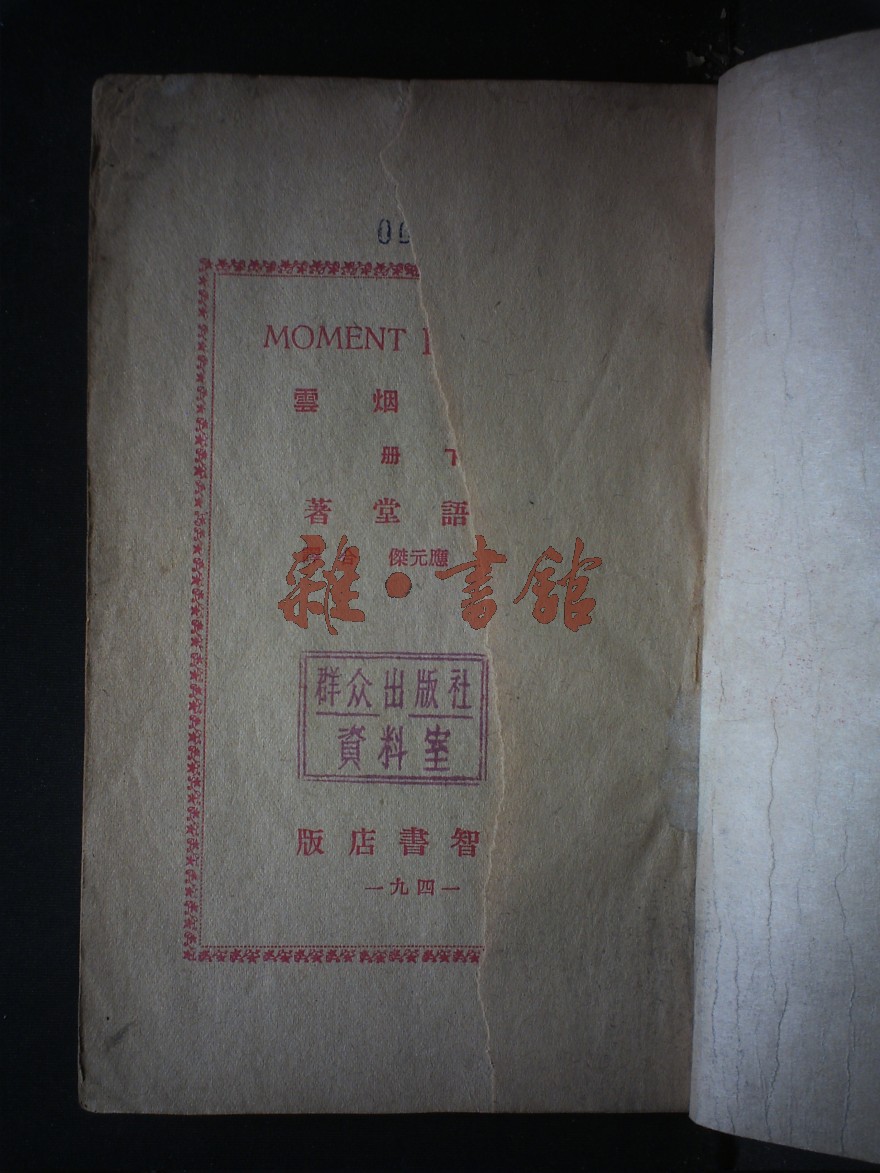 MOMENT
烟雲
下册
語堂著
應元傑
雜·書館
群众出版社
資料室
智書店版
一九四一